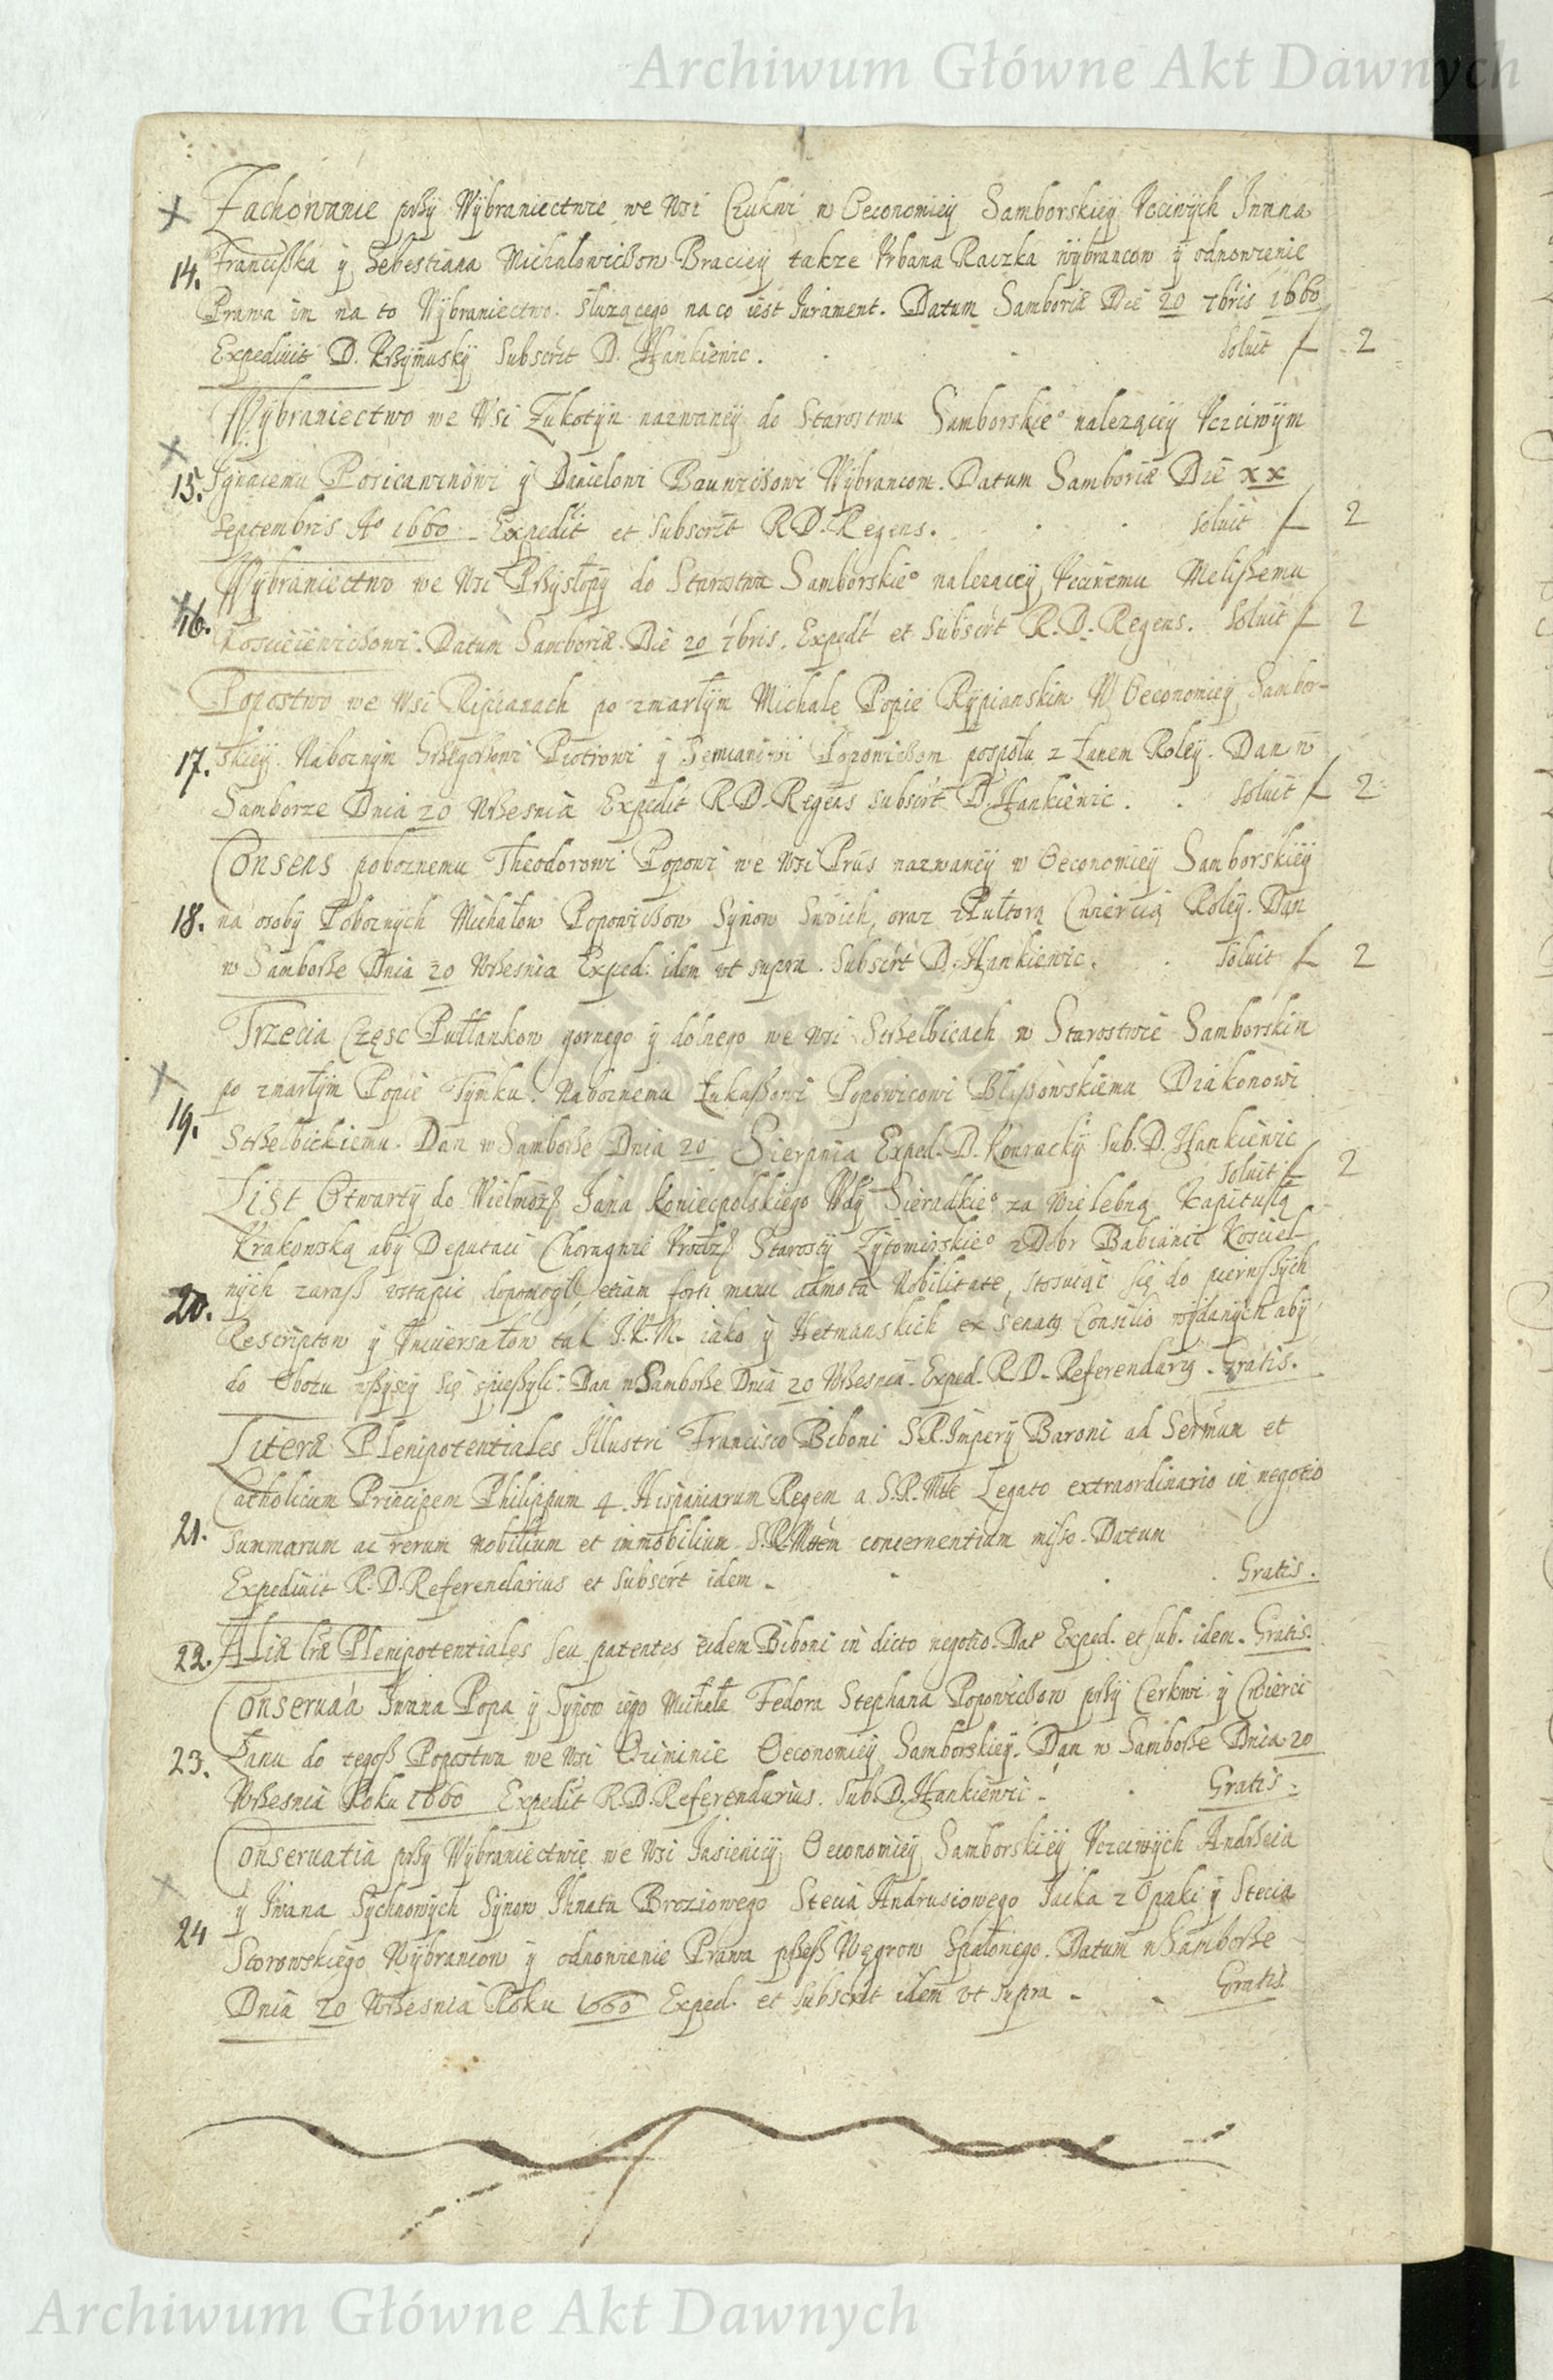 Archiwum Główne Akt Dawnych
Zachowanie przy Wybraniectwie we Wsi Czukwi w Oeconomiey Samborskiey Vcciwych Iwana
14. Franciszka y Sebestiana Michalowiczow Braciey takze Vrbana Raczka wybrancow y odnowienie
Prawa im na to Wybraniectwo służącego na co iest Iurament. Datum Samboriæ Die 20 7bris 1660
Expediuit D. Krzymusky Subscrit D. Hankiewic. Soluit f 2
Wybraniectwo we Wsi Żukotyn nazwaney do Starostwa Samborskieº należącey Vczciwym
15. Ignacemu y Danielowi Wybrancom. Datum Samboriæ Die xx
Septembris Aº 1660 Expedit et subscrit R.D. Regens. Soluit f 2
Wybraniectwo we Wsi Przysłopy do Starostwa Samborskieº nalezącey Vcciwemu
16. Datum Samboriæ. Die 20 7bris. Expedt et subscrt R.D. Regens. Soluit f 2
Popostwo we Wsi Ripianach po zmarłym Michale Popie Rypianskim W Oeconomiey Sambor-
17. skiey. Naboznym Grzegorzowi Piotrowi y Popowiczom pospołu z Łanem Roley. Dan w
Samborze Dnia 20 Wrzesnia Expedit R.D. Regens subscrt D. Hankiewic. Soluit f 2
Consens poboznemu Theodorowi Popowi we Wsi Prus nazwaney w Oeconomiey Samborskiey
18. na osoby Poboznych Michałow Popowiczow Synow Swoich, oraz z Pułtorą Cwiercią Roley. Dan
w Samborze Dnia 20 Wrzesnia Exped: idem vt supra. Subscrt D. Hankiewic. Soluit f 2
Trzecia Częsc Pułłankow gornego y dolnego we Wsi Strzelbicach w Starostwie Samborskim
po zmarłym Popie Tymku. Naboznemu Łukaszowi Popowicowi Diakonowi
19. Strzelbickiemu. Dan w Samborze Dnia 20 Sierpnia Exped. D. Sub. D. Hankiewic
Soluit f 2
List Otwarty do Wielmożº Jana Koniecpolskiego Wdy Sieradkieº za Wielebną Kapitułą
Krakowską aby Deputaci Chorągwie Vrodzº Starosty Zytomirskieº z Dobr Babianic Koscieł-
20. nych zarasz vstąpic dopomogł, etiam forti manu admota Nobilitate, stosuiąc się do pierwszych
Rescriptow y Vniuersałow tak J.K.M. iako y Hetmanskich ex Senatus Consilio wydanych aby
do Obozu wszyscy się spieszyli. Dan w Samborze Dnia 20 Wrzesnia. Exped. R.D. Referendarius. Gratis.
Literæ Plenipotentiales Illustri Francisco Biboni S.R. Impery Baroni ad Sermum et
Catholicum Principem Philippum 4. Hispaniarum Regem a S.R. Mtte Legato extraordinario in negotio
21. Summarum ac rerum mobilium et immobilium S.R. Mttem concernentium misso. Datum
Expediuit R.D. Referendarius et subscrt idem. Gratis.
22. Aliæ lræ Plenipotentiales seu patentes eidem Biboni in dicto negotio. Dat Exped. et sub. idem. Gratis.
Conseruaa Iwana Popa y Synow iego Michała Fedora Stephana Popowiczow przy Cerkwi y Cwierci
23. Łanu do tegosz Popostwa we Wsi Oziminie Oeconomiey Samborskiey. Dan w Samborze Dnia 20
Wrzesnia Roku 1660 Expedit R.D. Referendarius. Sub. D. Hankiewic. Gratis.
Conseruatia przy Wybraniectwie we Wsi Iasienicy Oeconomiey Samborskiey Vczciwych Andrzeia
24 y Iwana Sychnowych Synow Ihnata Broziowego Stecia Andrusiowego Iacka z Opaki y Stecia
Storowskiego Wybrancow y odnowienie Prawa przesz Węgrow Spalonego. Datum w Samborze
Dnia 20 Wrzesnia Roku 1660 Exped. et subscrit idem vt supra. Gratis.
Archiwum Główne Akt Dawnych